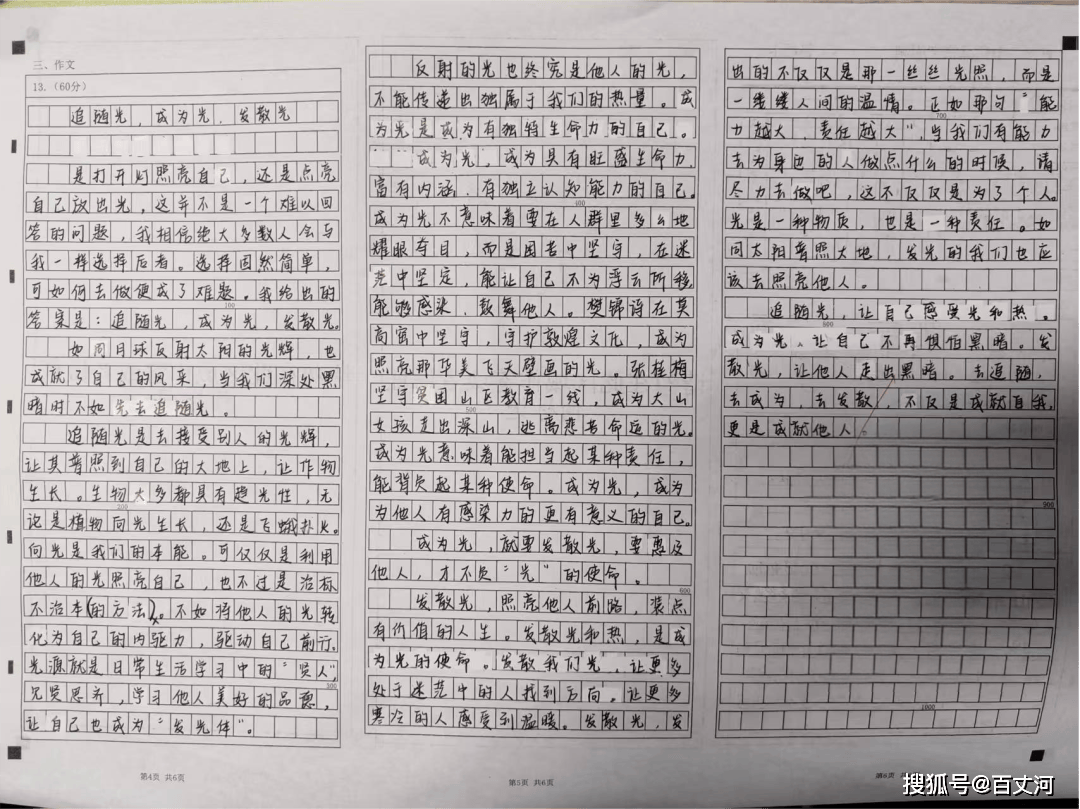 三、作文
13.（60分）
追随光，成为光，发散光
是打开灯照亮自己，还是点亮
自己放出光，这并不是一个难以回
答的问题，我相信绝大多数人会与
我一样选择后者。选择固然简单，
可如何去做便成了难题。我给出的
100
答案是：追随光，成为光，发散光。
如同月球反射太阳的光辉，也
成就了自己的风采，当我们深处黑
暗时不如先去追随光。
追随光是去接受别人的光辉，
让其普照到自己的大地上，让作物
生长。生物大多都具有趋光性，无
200
论是植物向光生长，还是飞蛾扑火。
向光是我们的本能。可仅仅是利用
他人的光照亮自己，也不过是治标
不治本(的方法)。不如将他人的光转
化为自己的内驱力，驱动自己前行。
光源就是日常生活学习中的“贤人”，
300
见贤思齐，学习他人美好的品德，
让自己也成为“发光体”。
第4页 共6页
反射的光也终究是他人的光，
不能传递出独属于我们的热量。成
为光是成为有独特生命力的自己。
成为光，成为具有旺盛生命力，
富有内涵，有独立认知能力的自己。
400
成为光不意味着要在人群里多么地
耀眼夺目，而是困苦中坚守，在迷
茫中坚定，能让自己不为浮云所移，
能够感染、鼓舞他人。樊锦诗在莫
高窟中坚守，守护敦煌文化，成为
照亮那华美飞天壁画的光。张桂梅
坚守贫困山区教育一线，成为大山
500
女孩走出深山，逃离悲苦命运的光。
成为光意味着能担当起某种责任，
能背负起某种使命。成为光，成为
为他人有感染力的更有意义的自己。
成为光，就要发散光，要惠及
他人，才不负“光”的使命。
600
发散光，照亮他人前路，装点
有价值的人生。发散光和热，是成
为光的使命。发散我们光，让更多
处于迷茫中的人找到方向。让更多
寒冷的人感受到温暖。发散光，发
第5页 共6页
出的不仅仅是那一丝丝光照，而是
一缕缕人间的温情。正如那句“能
700
力越大，责任越大”，当我们有能力
去为身边的人做点什么的时候，请
尽力去做吧，这不仅仅是为了个人。
光是一种物质，也是一种责任。如
同太阳普照大地，发光的我们也应
该去照亮他人。
追随光，让自己感受光和热。
800
成为光，让自己不再惧怕黑暗。发
散光，让他人走出黑暗。去追随，
去成为，去发散，不仅是成就自我，
更是成就他人。
900
1000
第6页
搜狐号@百丈河